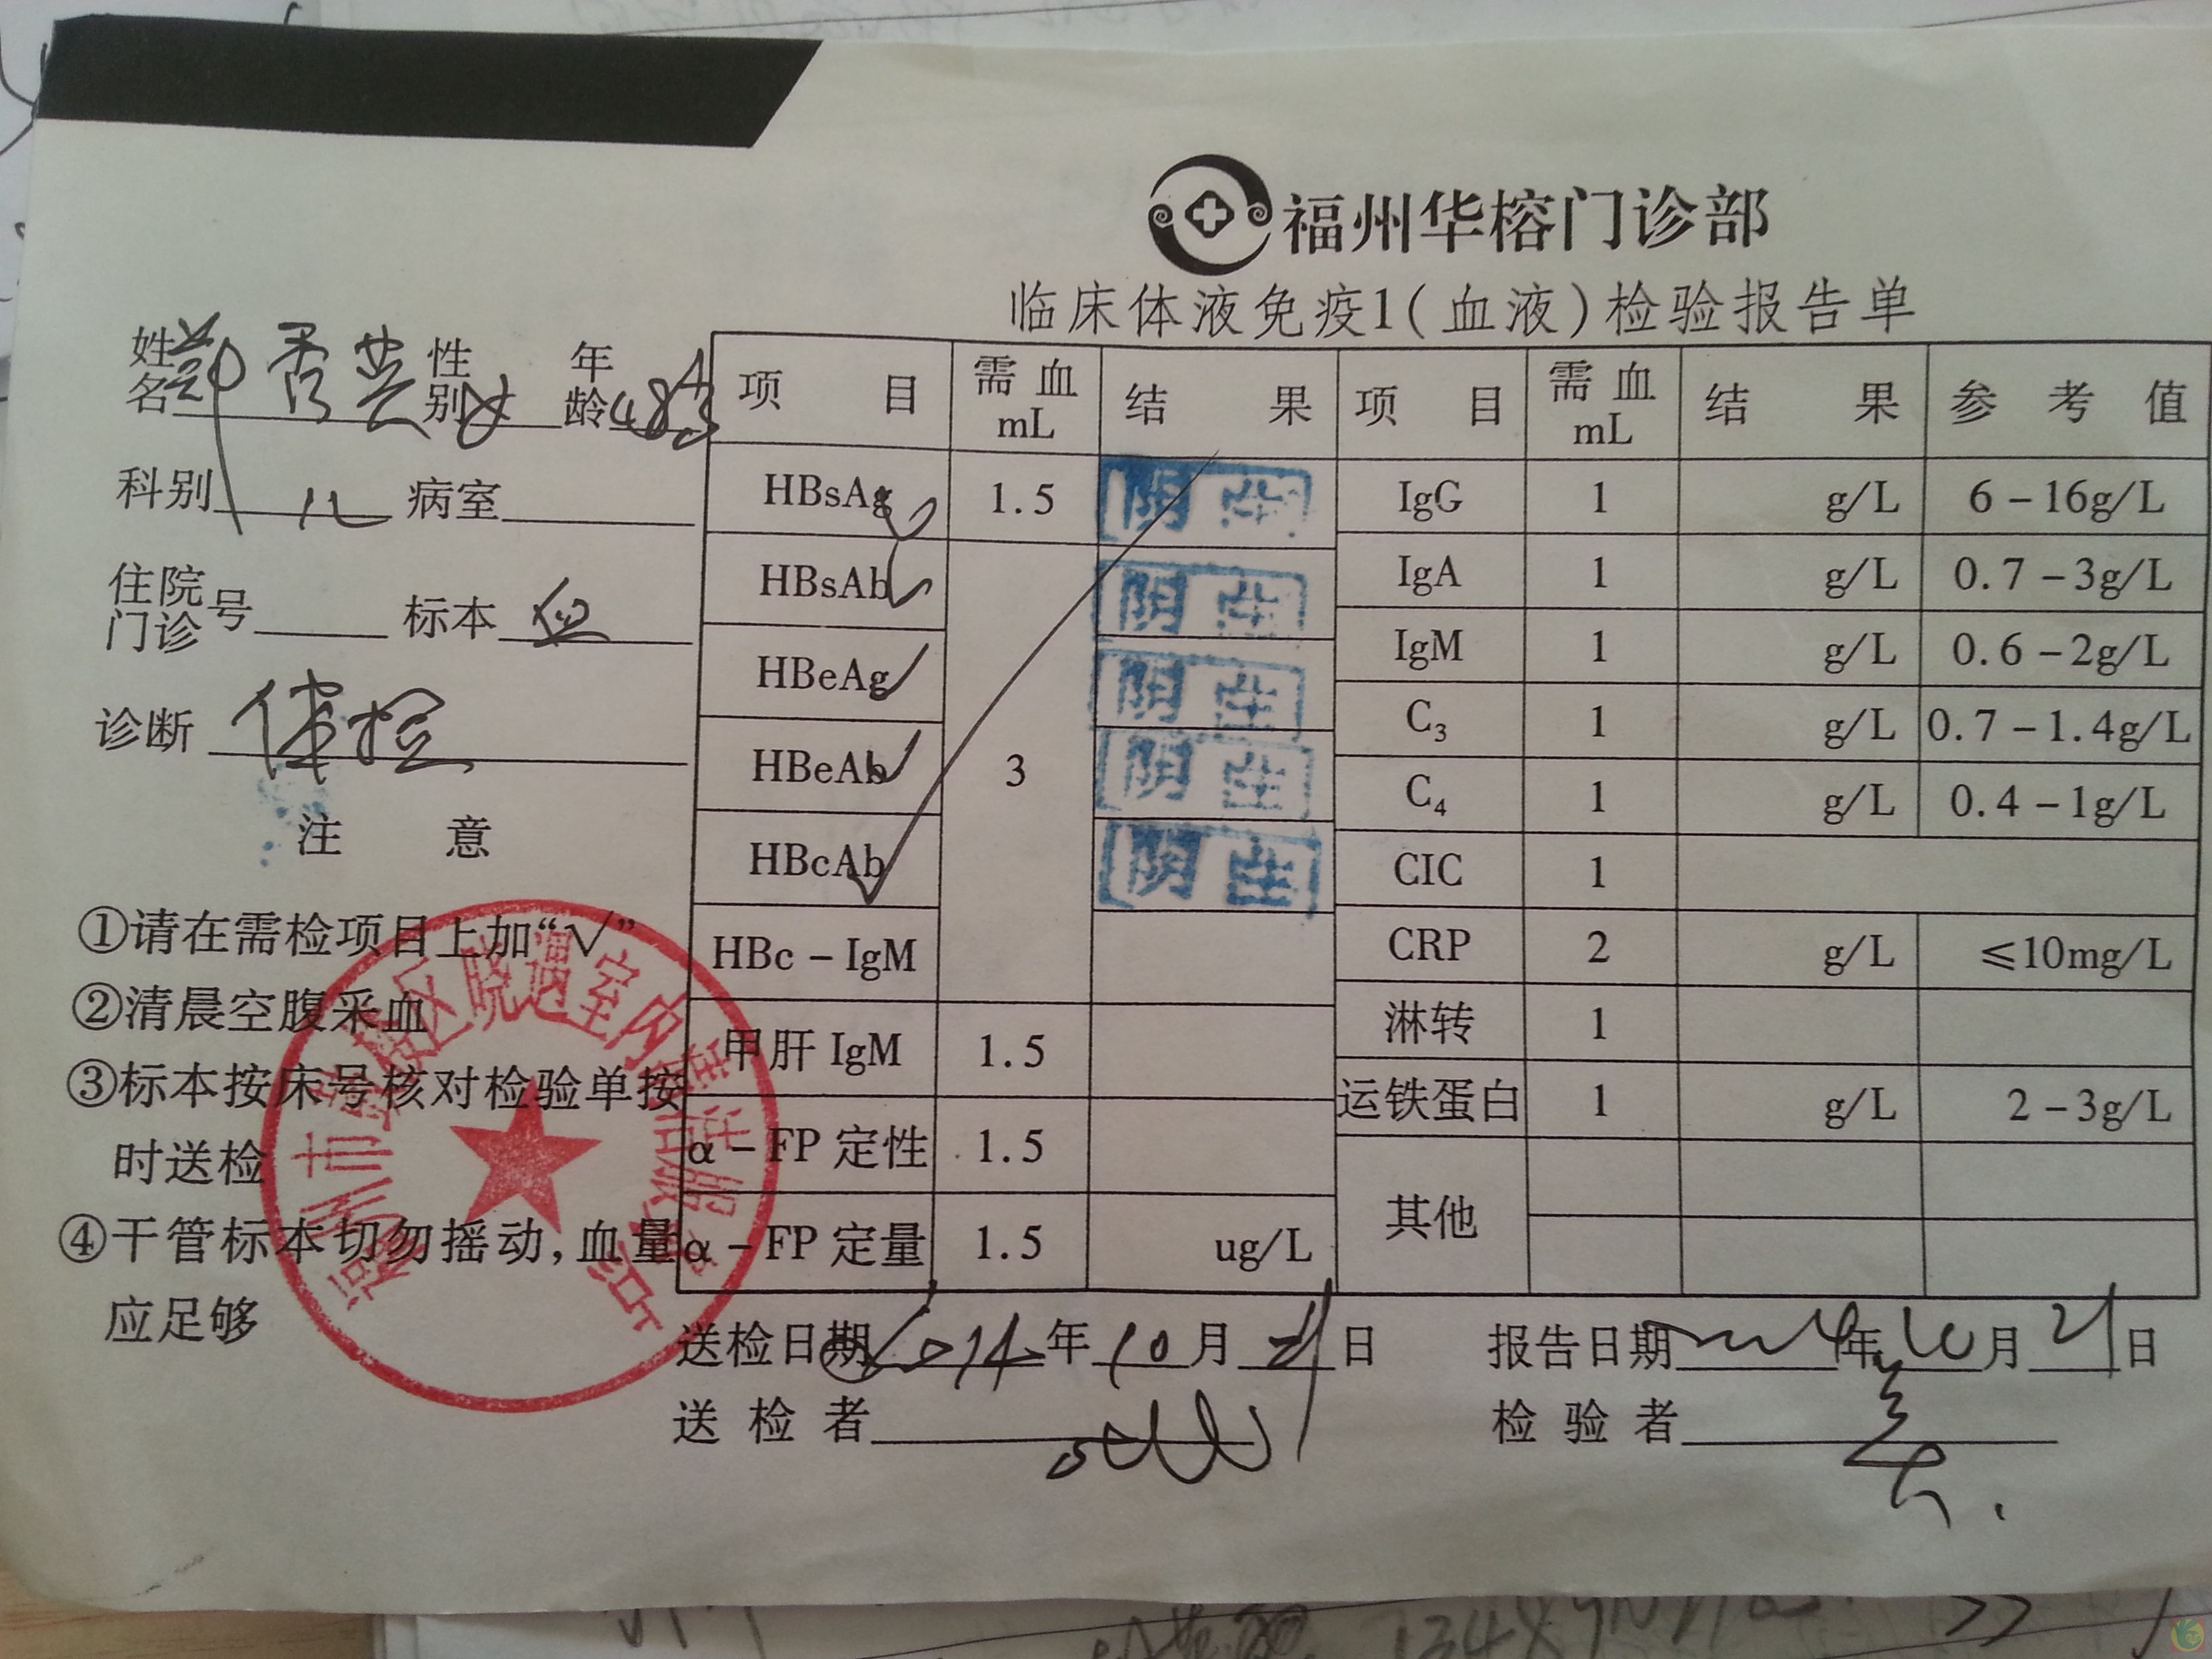 福州华榕门诊部
临床体液免疫1(血液)检验报告单
姓名 性别女 年龄48
科别 病室
住院门诊号 标本 血
诊断 体检
注 意
①请在需检项目上加“√”
②清晨空腹采血
③标本按床号核对检验单按
时送检
④干管标本切勿摇动，血量
应足够
项 目 需血mL 结 果 项 目 需血mL 结 果 参 考 值
HBsAg 1.5 阴性 IgG 1 g/L 6-16g/L
HBsAb 3 阴性 IgA 1 g/L 0.7-3g/L
HBeAg 阴性 IgM 1 g/L 0.6-2g/L
HBeAb 阴性 C3 1 g/L 0.7-1.4g/L
HBcAb 阴性 C4 1 g/L 0.4-1g/L
HBc-IgM CIC 1
甲肝IgM 1.5 CRP 2 g/L ≤10mg/L
α-FP定性 1.5 淋转 1
α-FP定量 1.5 ug/L 运铁蛋白 1 g/L 2-3g/L
其他
送检日期 2014年10月21日 报告日期 年10月21日
送检者 检验者